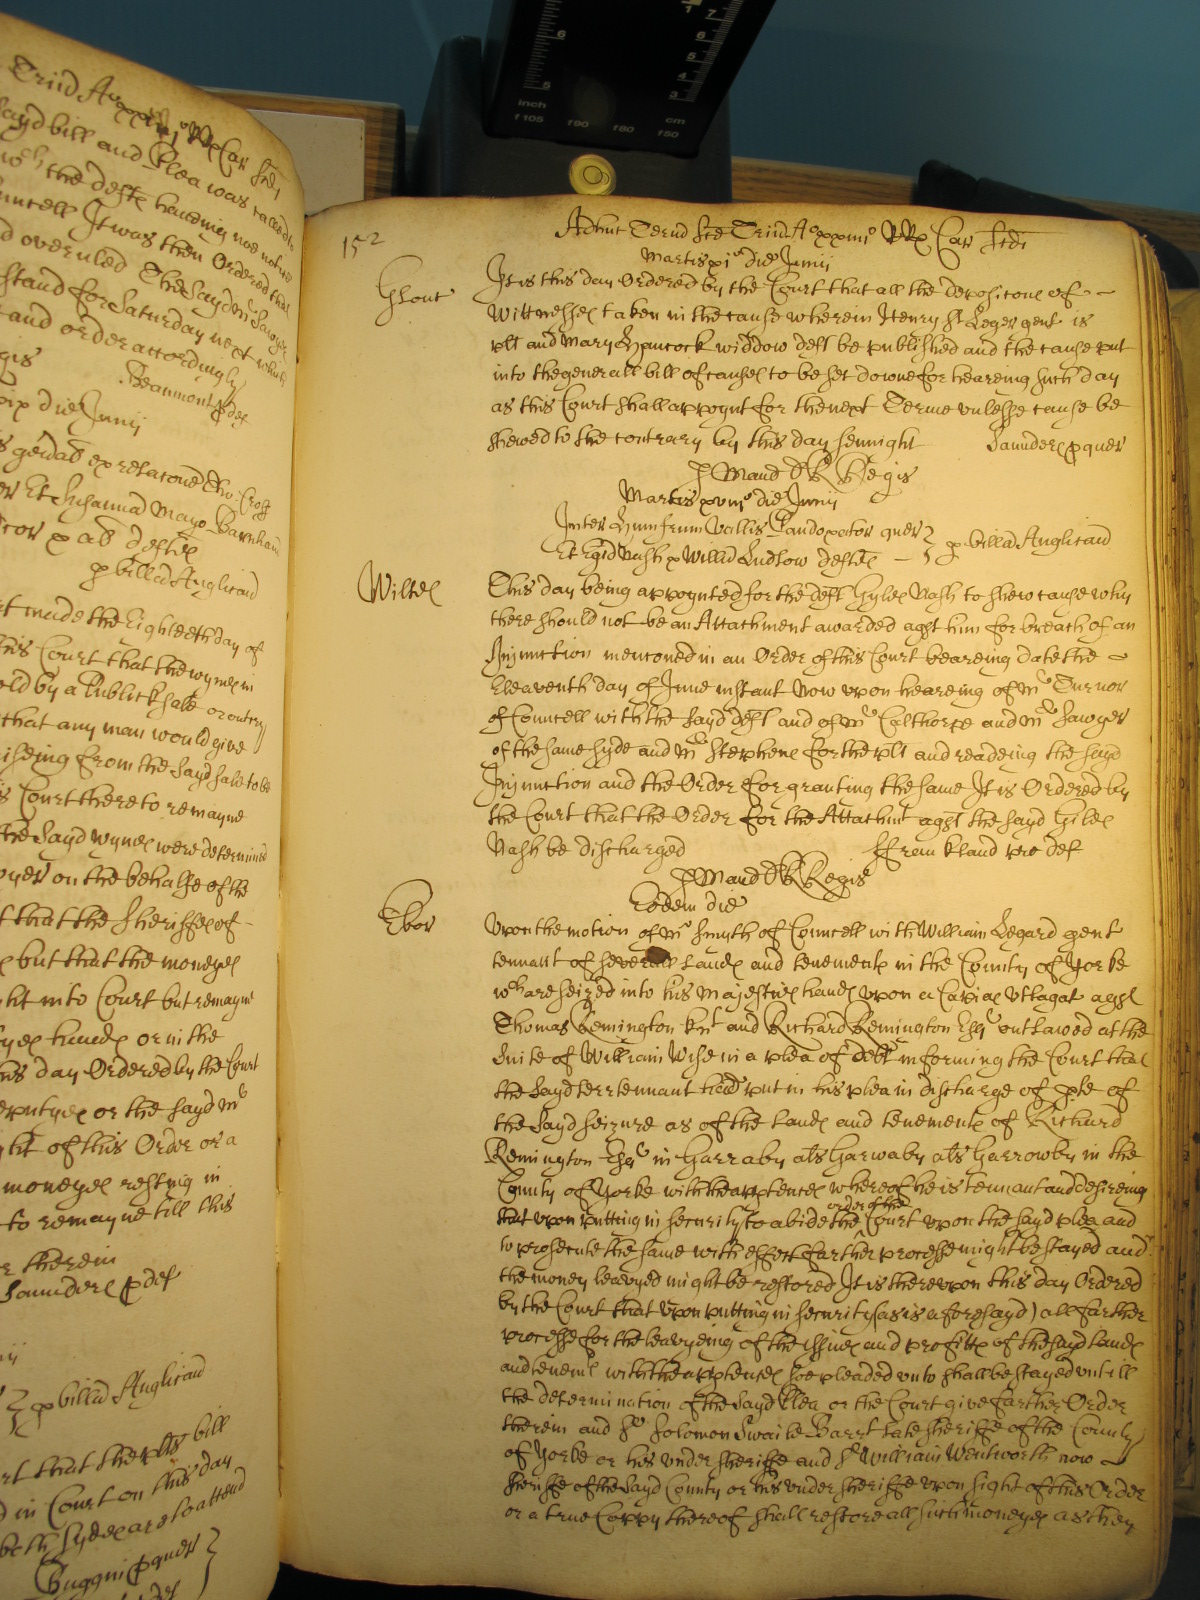 Trin A° xxiiij° RRs Car Scdi
sayd bill and Plea was called
wch the defte haveing noe notice
Councell It was then Ordered that
overuled The sayd mr Sawyer
stand for Saturday next which
and order accordingly
Beaumont p def
xix die Junij
ex relacone Tho: Cross
Et Susanna Mayo Barnham
p billa Anglicana
made the Eighteeth day of
this Court that the wynes in
sold by a Publick sale or outcry
that any man would give
riseing from the sayd sale to be
Court there to remayne
the sayd wynes were determined
on the behalfe of the
that the Sheriffes of
but that the moneyes
into Court but remayne
hands or in the
this day Ordered by the Court
or the sayd mr
sight of this Order or a
moneyes resting in
to remayne till this
therein
Saunders p def
p billa Anglicana
that the plts bill
in Court on this day
both sydes are to attend
Buggin p quer
152
Adhuc Term Sce Trin A° xxiiij° RRs Car Scdi
Martis xi° die Junij
Glouc
It is this day Ordered by the Court that all the deposicons of
Wittnesses taken in the cause wherein Henry St Leger gent is
plt and Mary Hancock widdow deft be published and the cause put
into the generall bill of causes to be set downe for heareing such day
as this Court shall appoynt for the next Terme unlesse cause be
shewed to the contrary by this day sennight Saunders p quer
p Mand Dni Regis
Martis xviij° die Junij
Inter Humfrum Wallis Pandoxator quer } p billa Anglicana
Et Egid Nash & Willm Ludlow deftes
Wiltes
This day being appoynted for the deft Gyles Nash to shew cause why
there should not be an Attachment awarded agst him for breach of an
Injunction menconed in an Order of this Court beareing date the
Eleaventh day of June instant Now upon heareing of mr Turnor
of Councell with the sayd deft and of mr Calthorpe and mr Sawyer
of the same syde and mr Stephens for the plt and readeing the sayd
Injunction and the Order for granting the same It is Ordered by
the Court that the Order for the Attachmt agst the sayd Giles
Nash be discharged ffrankland pro def
p Mand Dni Regis
Eodem die
Ebor
Upon the motion of mr Smyth of Councell with William Legard gent
tennant of severall Lands and tenements in the County of Yorke
wch are seized into his Majesties hands upon a Capias Utlagat agst
Thomas Remington Knt and Richard Remington Esqr outlawed at the
suite of William Wise in a plea of debt informing the Court that
the sayd terrtennant had put in his plea in discharge of pte of
the sayd seizure as of the Lands and tenements of Richard
Remington Esqr in Garraby als Garwaby als Garrowby in the
County of Yorke with thapptences whereof he is tennant and desireing
that upon putting in security to abide the order of the Court upon the sayd plea and
to prosecute the same with effect farther processe might be stayed and
the money leavyed might be restored It is thereupon this day Ordered
by the Court that upon putting in security (as is aforesayd) all farther
processe for the leavyeing of the issues and profitts of the sayd Lands
and tenemts with thapptences soe pleaded unto shall be stayed untill
the determination of the sayd Plea or the Court give farther Order
therein and Sr Solomon Swaile Barrt late sheriffe of the County
of Yorke or his under sheriffe and Sr William Wentworth now
sheriffe of the sayd County or his under sheriffe upon sight of this Order
or a true Coppy thereof shall restore all such moneyes as they
inch
cm